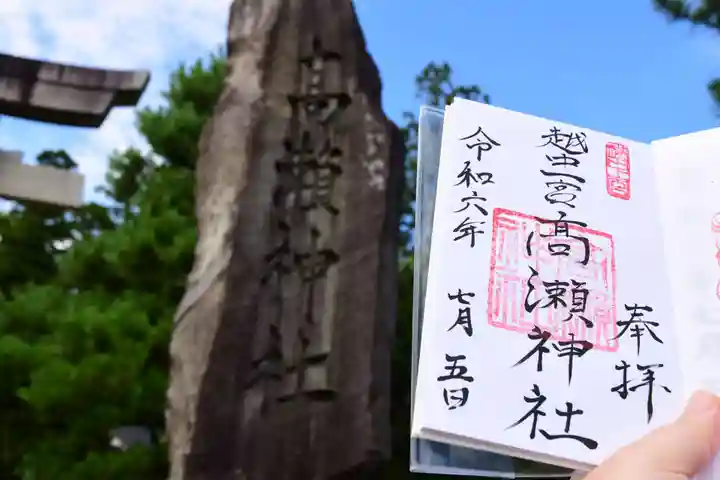 高瀬神社
奉拝
越中一宮高瀬神社
令和六年
七月五日